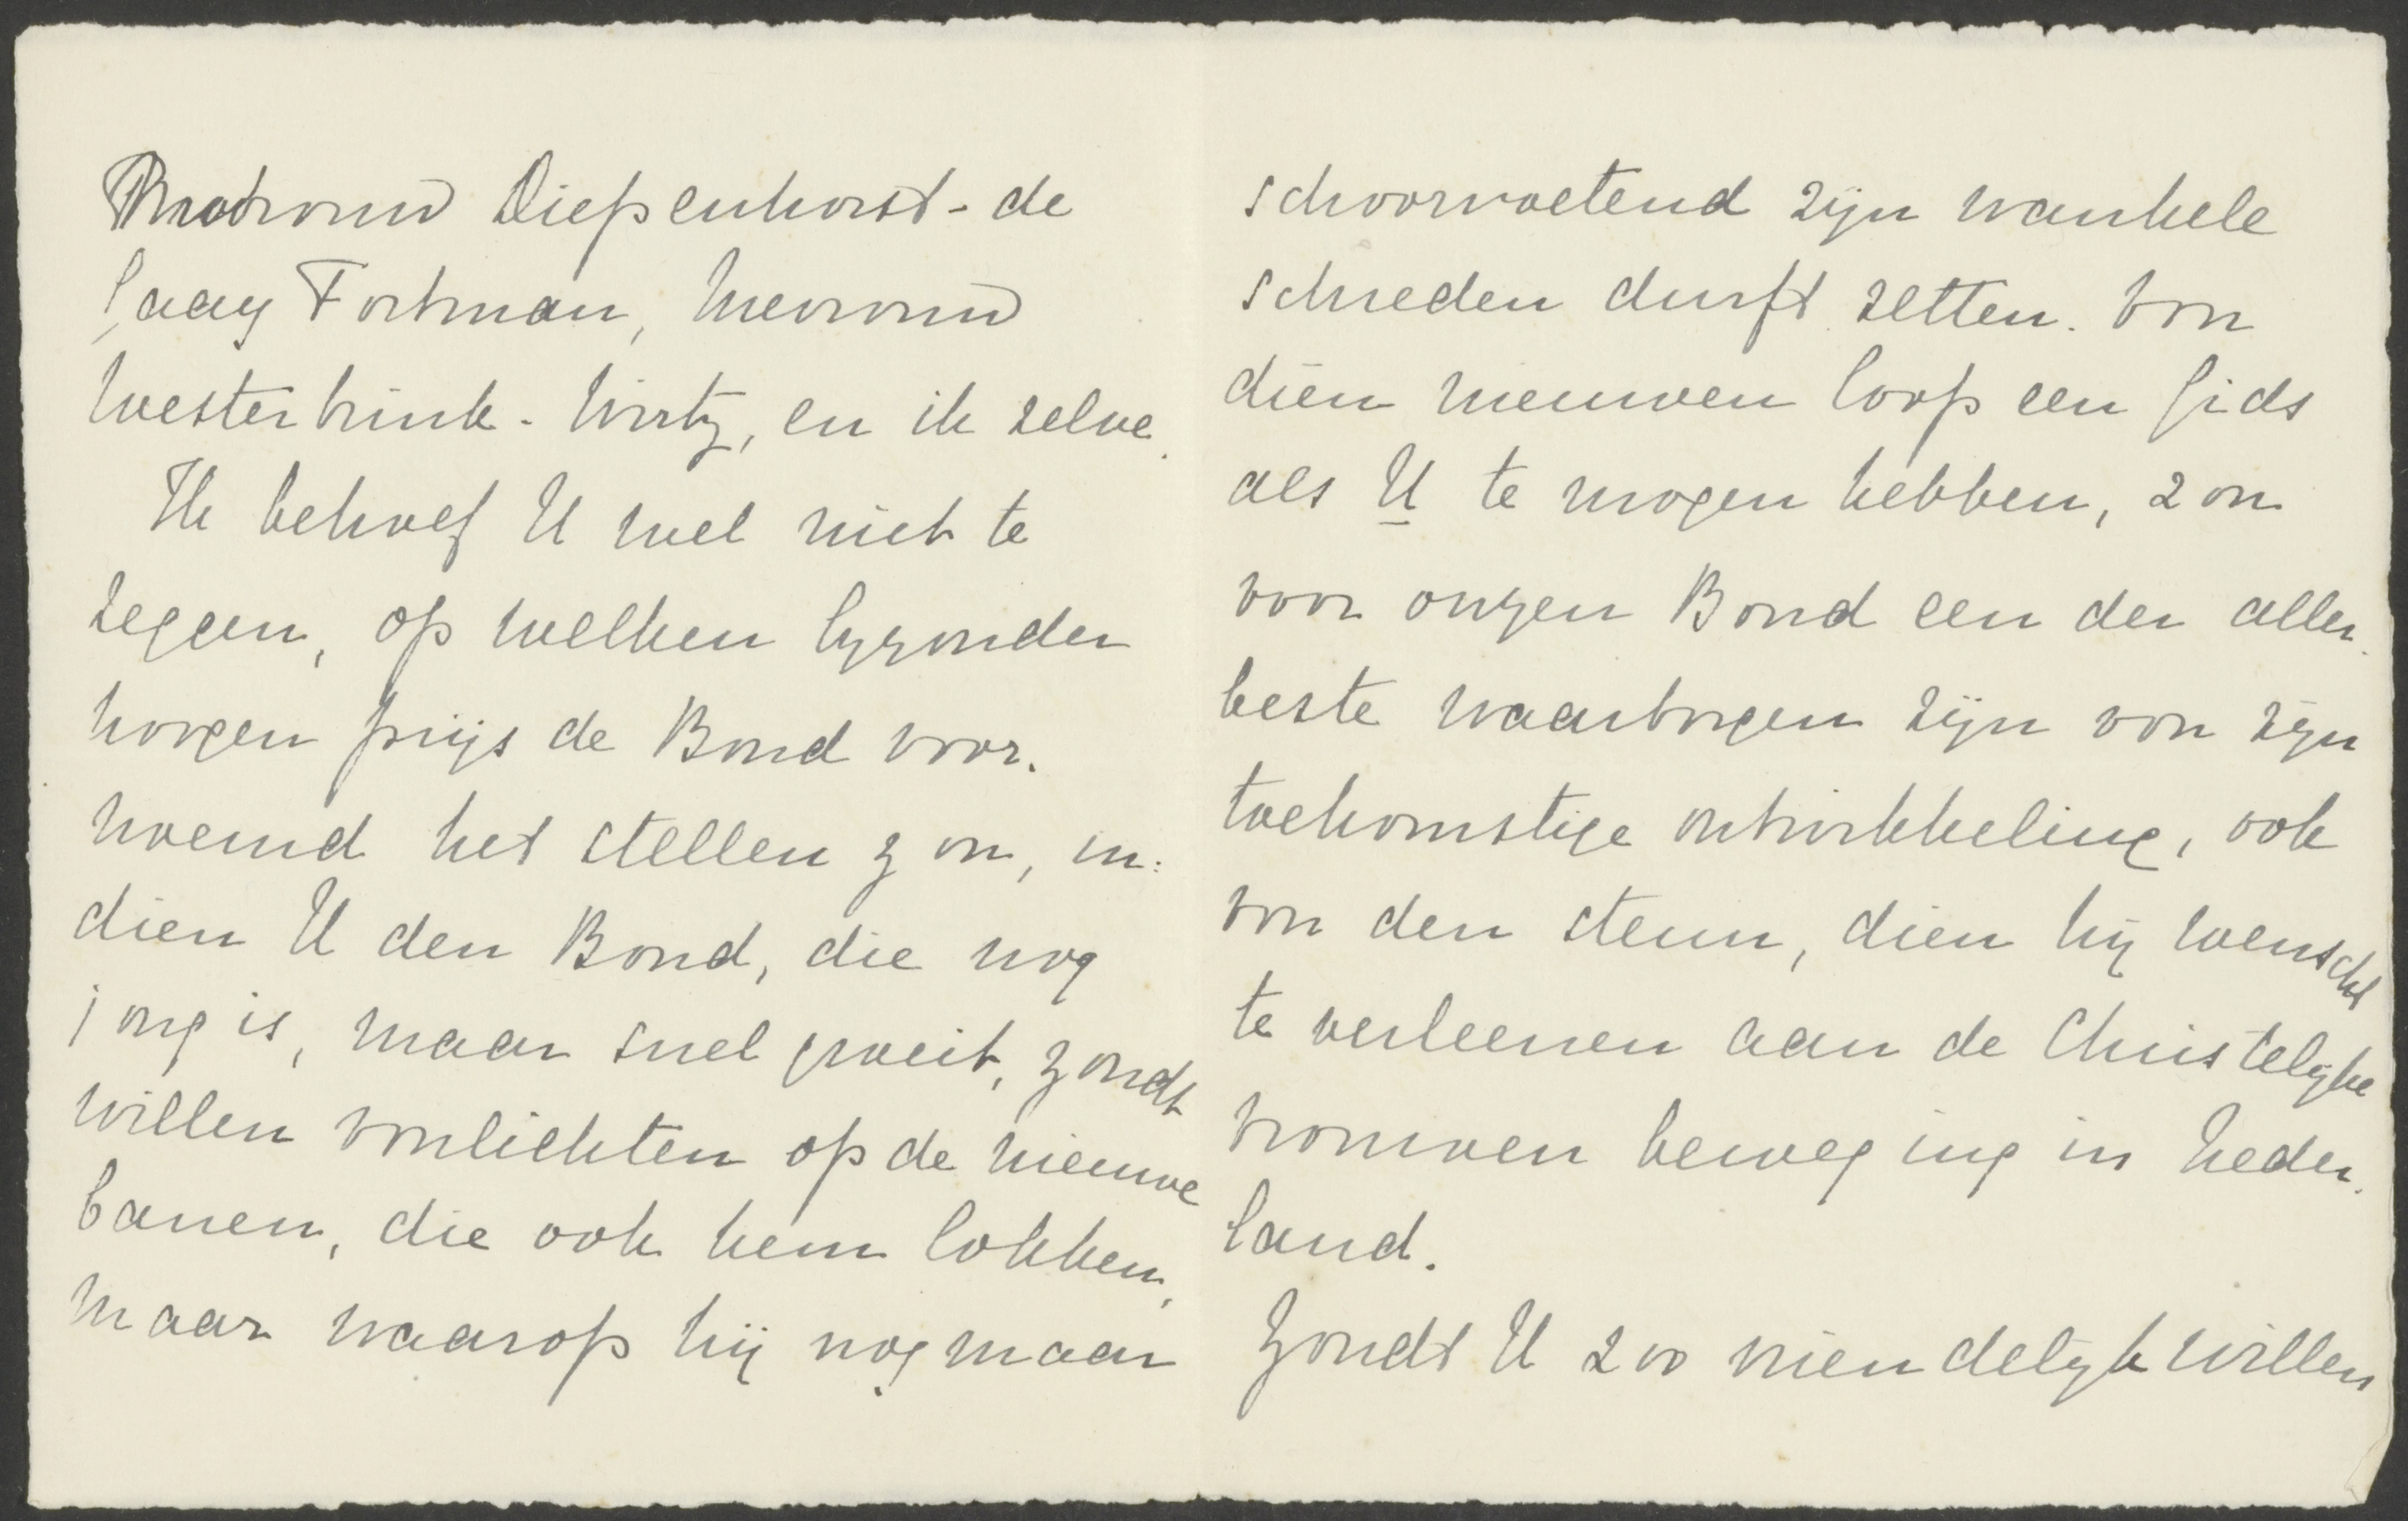 Mevrouw Diepenhorst-de
Gaay Fortman, Mevrouw
Westerbrink-Wirtz, en ik zelve.
Ik behoef U wel niet te
zeggen, op welken byzonder
hoogen prijs de Bond voor-
noemd het stellen zou, in-
dien U den Bond, die nog
jong is, maar snel groeit, zoudt
willen voorlichten op de nieuwe
banen, die ook hem lokken,
maar waarop hij nog maar
schoorvoetend zijn wankele
schreden durft zetten. Van
dien nieuwen loop een gids
als U te mogen hebben, zou
voor onzen Bond een der aller-
beste waarborgen zijn van zijn
toekomstige ontwikkeling, ook
van den steun, dien hij wenscht
te verleenen aan de Christelyke
vrouwenbeweging in Neder-
land.
Zoudt U zoo vriendelyk willen